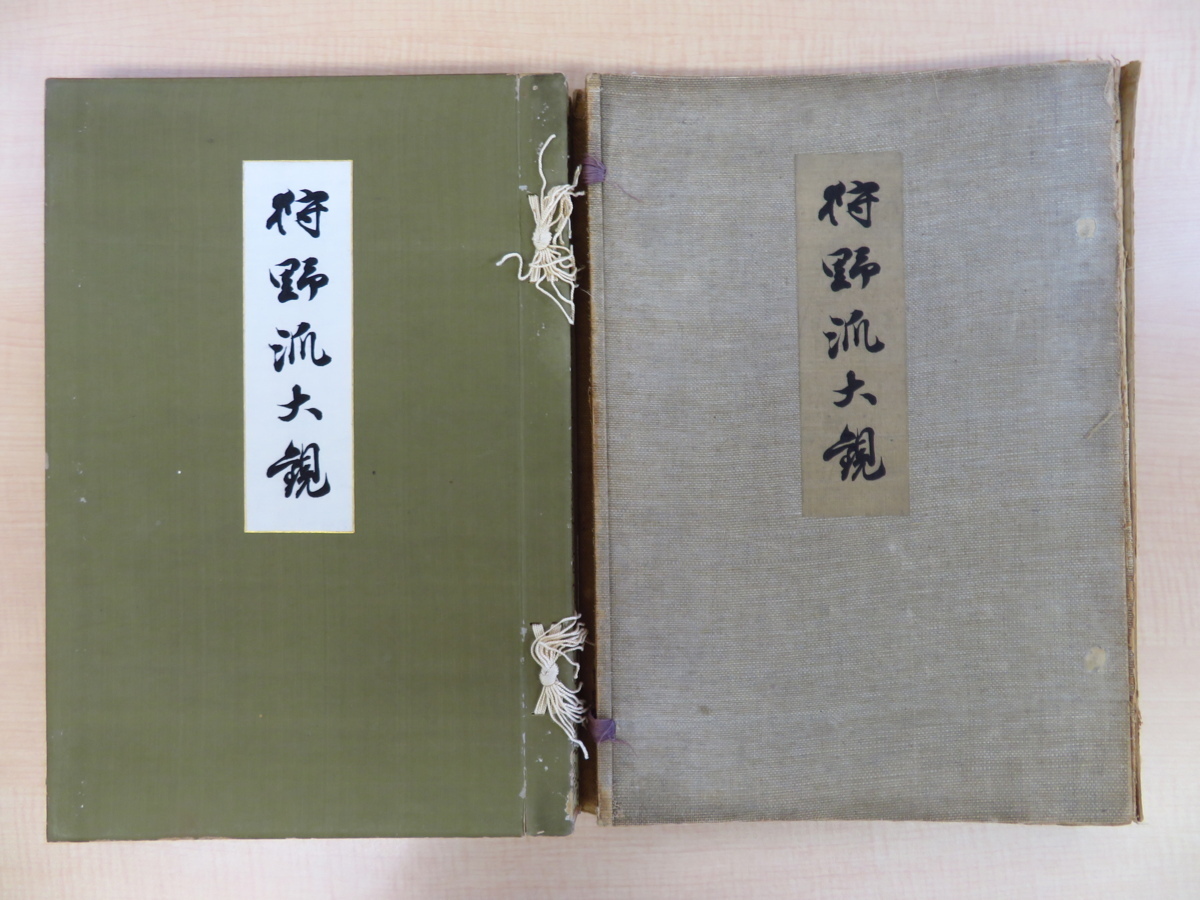 狩野派大観
狩野派大観